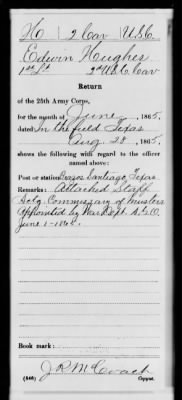 H | 2 Cav | U.S.C.
Edwin Hughes
1st Lt., 2nd U.S.C. Cav
Return
of the 25th Army Corps,
for the month of June, 1865.
dated In the field Texas
Aug 28, 1865.
shows the following with regard to the officer
named above:
Post or station: Brazos Santiago, Texas
Remarks: Attached Staff
Actg Commissary of Musters
Appointed by War Dept. A.G.O.
June 1-1865.
Book mark:
J.R. McCoach
(848) Copyist.